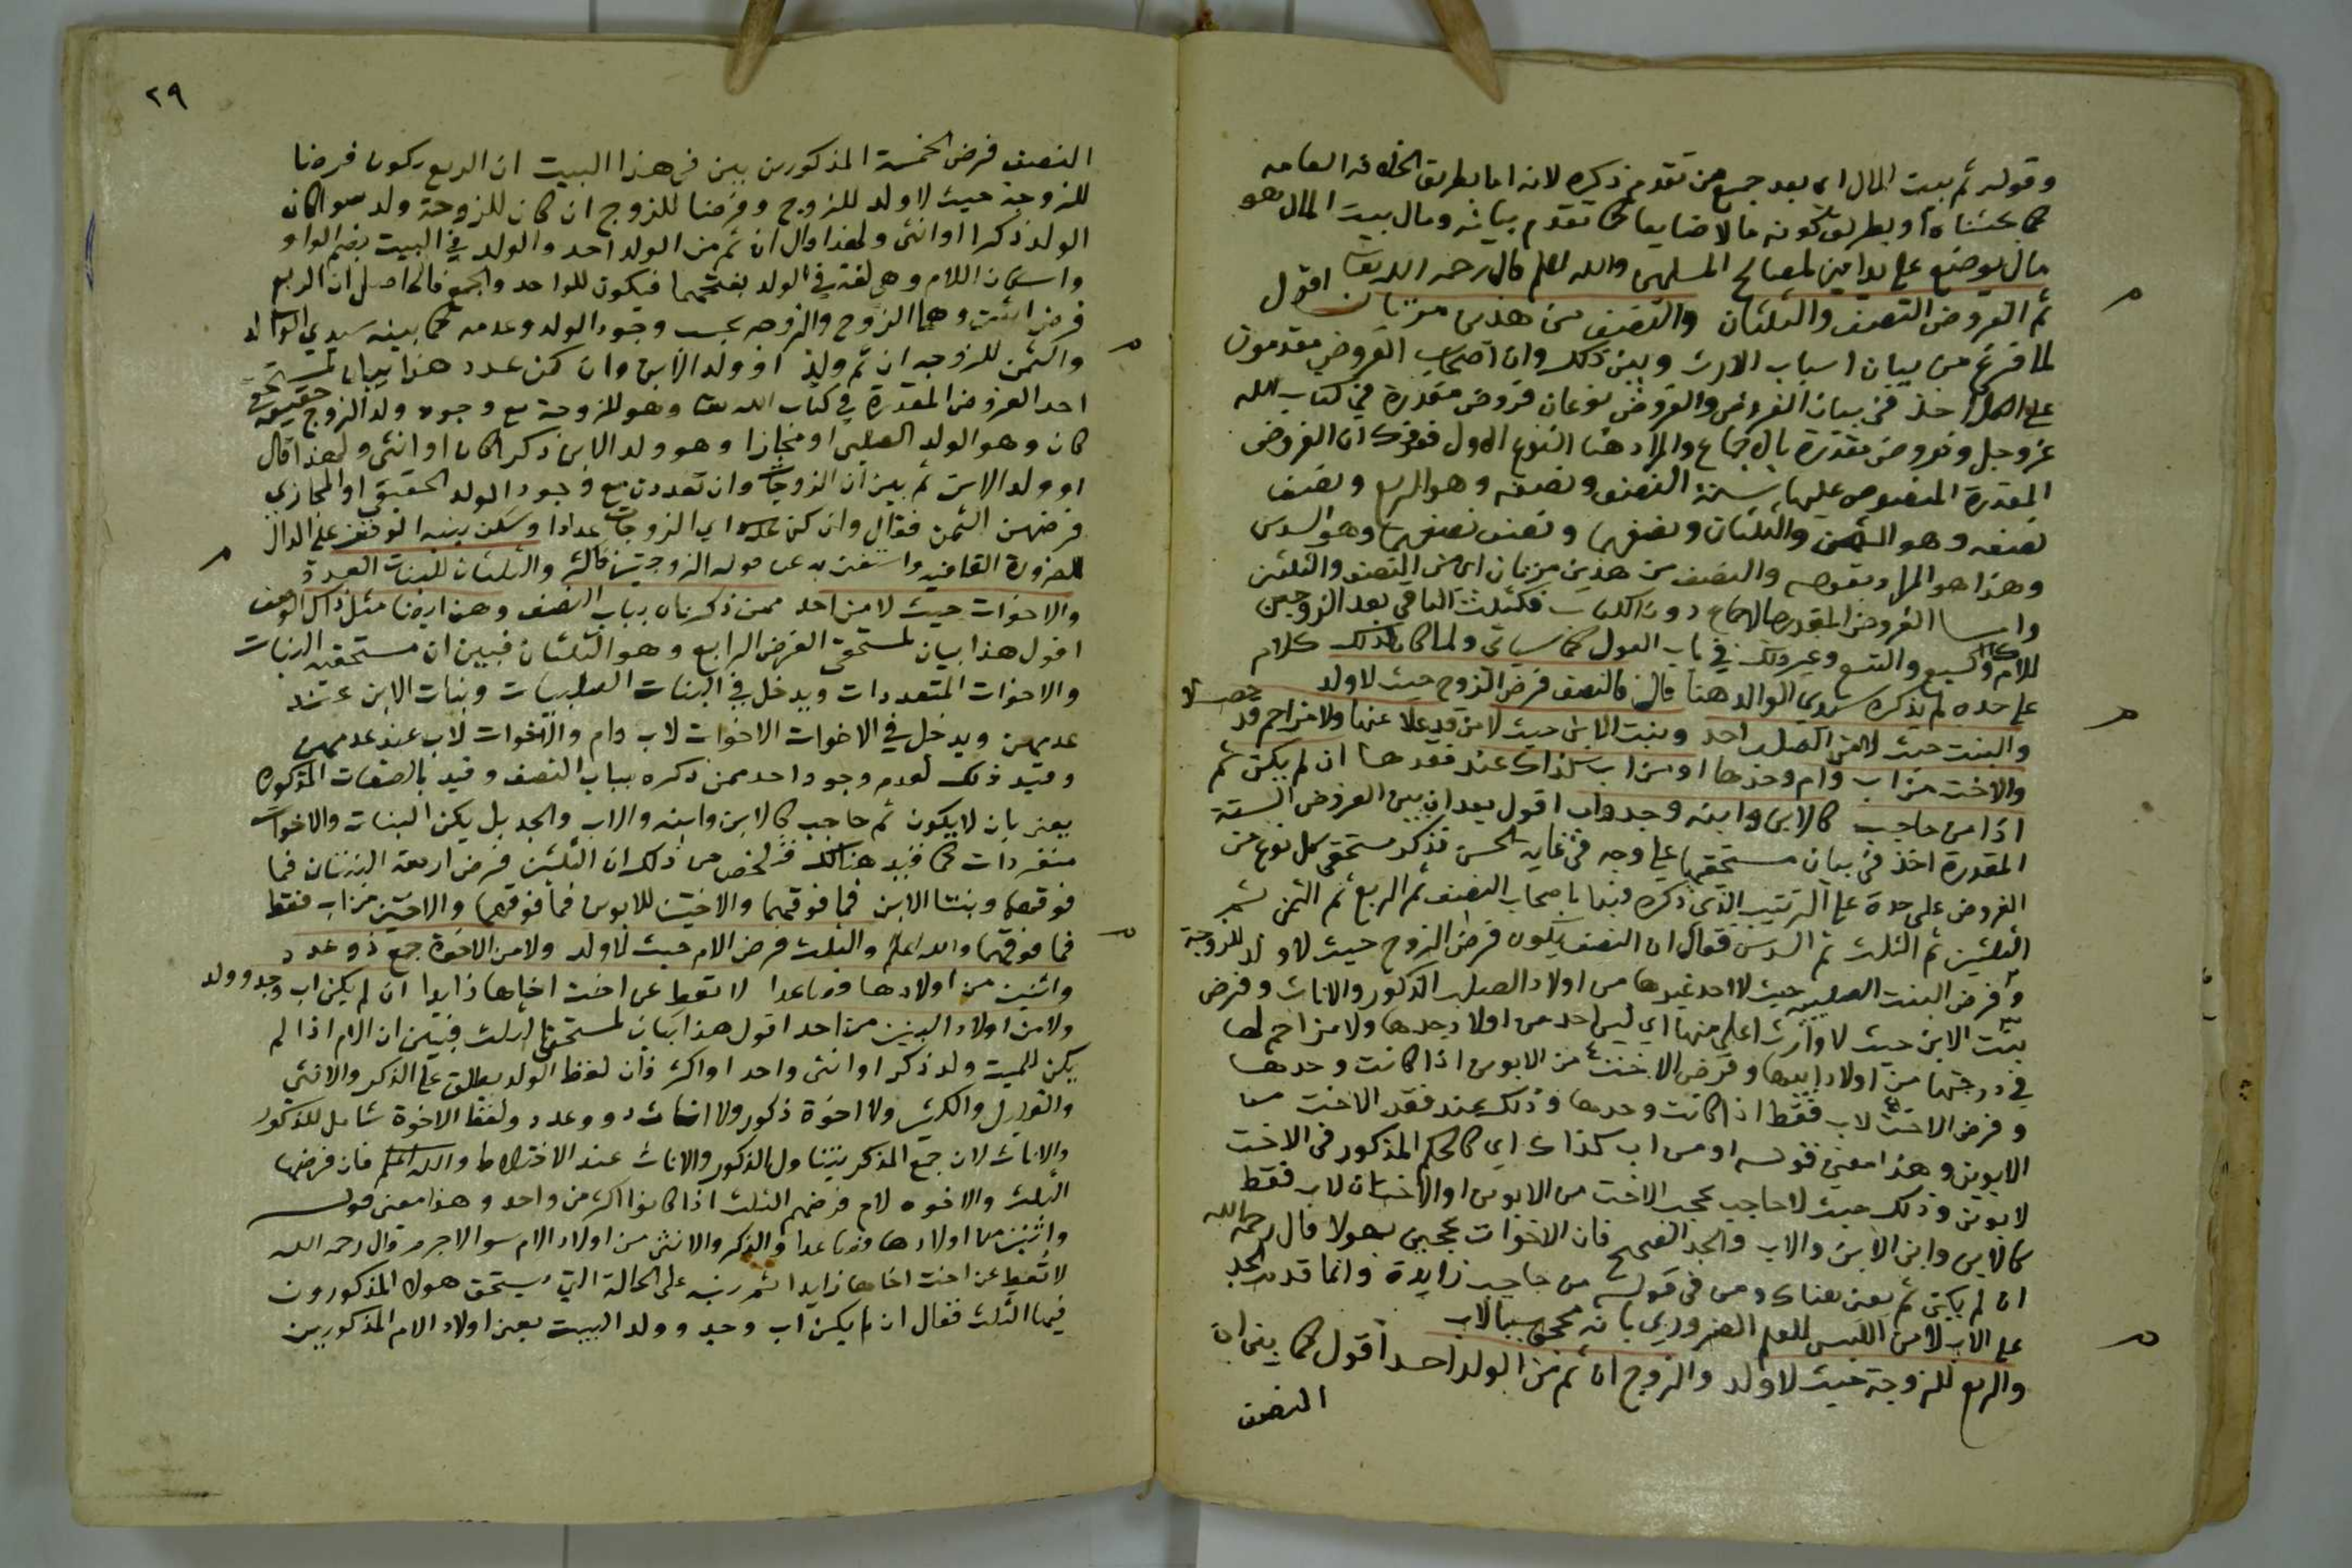 وقوله ثم بيت المال اي بعد جميع من تقدم ذكره لانه اما بطريق الخلافة العامه
كما بحثناه او بطريق كونه مالا ضايعا كما تقدم بيانه ومال بيت المال هو
مال يوضع على يد امين لمصالح المسلمين والله اعلم قال رحمه الله تعالى
ثم الفروض النصف والثلثان والنصف من هذين مرتان اقول
لما فرغ من بيان اسباب الارث وبين ذلك وان اصحاب الفروض مقدمون
على الكل اخذ في بيان الفروض والفروض نوعان فروض مقدرة في كتاب الله
عز وجل وفروض مقدرة بالاجماع والمراد هنا النوع الاول فقوله ان الفروض
المقدرة المنصوص عليها ستة النصف ونصفه وهو الربع ونصف
نصفه وهو الثمن والثلثان ونصفهما ونصف نصفهما وهو السدس
وهذا هو المراد بقوله والنصف من هذين مرتان اي من النصف والثلثين
واما الفروض المقدرة بالاجماع دون الكتاب فكثلث الباقي بعد الزوجين
للام وكالسبع والتسع وغير ذلك في باب العول كما سياتي ولما كان لذلك كلام
على حده لم يذكره سيدي الوالد هنا قال فالنصف فرض الزوج حيث لا ولد
والبنت حيث لا من الصلب احد وبنت الابن حيث لا من قد علا عنها ولا مزاحم قد حصلا
والاخت من اب وام وحدها او من اب كذاك عند فقدها ان لم يكن ثم
اذا من حاجب كالابن وابنه وجد واب اقول بعد ان بين الفروض الستة
المقدرة اخذ في بيان مستحقيها على وجه في غاية الحسن فذكر مستحقي كل نوع من
الفروض على حدة على الترتيب الذي ذكره فبدا باصحاب النصف ثم الربع ثم الثمن ثم
الثلثين ثم الثلث ثم السدس فقال ان النصف يكون فرض الزوج حيث لا ولد للزوجة
وفرض البنت الصلبيه حيث لا احد غيرها من اولاد الصلب الذكور والاناث وفرض
بنت الابن حيث لا وارث اعلى منها اي ليس احد من اولاد جدها ولا مزاحم لها
في درجتها من اولاد ابيها وفرض الاخت من الابوين اذا كانت وحدها
وفرض الاخت لاب فقط اذا كانت وحدها وذلك عند فقد الاخت من
الابوين وهذا معنى قوله او من اب كذاك اي كالحكم المذكور في الاخت
لابوين وذلك حيث لا حاجب يحجب الاخت من الابوين او الاخت لاب فقط
كالابن وابن الابن والاب والجد الصحيح فان الاخوات يحجبن بهولا قال رحمه الله
ان لم يكن ثم يعني هناك ومن في قوله من حاجب زايدة وانما قدم الجد
على الاب لامن اللبس للعلم الضروري بانه محجوب بالاب
والربع للزوجة حيث لا ولد والزوج ان ثم من الولد احد اقول كما بين ان
النصف
٢٩
النصف فرض الخمسة المذكورين بين في هذا البيت ان الربع يكون فرضا
للزوجة حيث لا ولد للزوج وفرضا للزوج ان كان للزوجة ولد سوا كان
الولد ذكرا او انثى ولهذا قال ان ثم من الولد احد والولد في البيت بضم الواو
واسكان اللام وهي لغة في الولد بفتحهما فيكون للواحد والجمع فالحاصل ان الربع
فرض اثنين وهما الزوج والزوجه بحسب وجود الولد وعدمه كما بينه سيدي الوالد
والثمن للزوجه ان ثم ولد او ولد الابن وان كن عدد هذا بيان لمستحق
احد الفروض المقدرة في كتاب الله تعالى وهو للزوجة مع وجود ولد الزوج حقيقة
كان وهو الولد الصلبي او مجازا وهو ولد الابن ذكرا كان او انثى ولهذا قال
او ولد الابن ثم بين ان الزوجات وان تعددن مع وجود الولد الحقيقي او المجازي
فرضهن الثمن فقال وان كن عدد اي الزوجات عددا وسكن بنيه الوقف على الدال
لضرورة القافيه واستغنى به عن قوله الزوجتين فاكثر والثلثان للبنات العدد
والاخوات حيث لا من احد ممن ذكرناه بباب النصف وهن ايضا مثل ذاك الوصف
اقول هذا بيان لمستحقي الفرض الرابع وهو الثلثان فبين ان مستحقيه البنات
والاخوات المتعددات ويدخل في البنات الصلبيات وبنات الابن عند
عدمهن ويدخل في الاخوات الاخوات لاب وام والاخوات لاب عند عدمهن
وقيد ذلك لعدم وجود احد ممن ذكره بباب النصف وقيد بالصفات المذكوره
يعني بان لا يكون ثم حاجب كالابن وابنه والاب والجد بل يكن البنات والاخوات
منفردات كما قيد هنالك فتلخص من ذلك ان الثلثين فرض اربعة البنتان فما
فوقهما وبنتا الابن فما فوقهما والاختين للابوين فما فوقهما والاختين من اب فقط
فما فوقهما والله اعلم والثلث فرض الام حيث لا ولد ولا من الاخوة جمع ذو عدد
واثنين من اولادها فصاعدا لا تعط عن اخت اخاها زايدا ان لم يكن اب وجد وولد
ولا من اولاد البنين من احد اقول هذا بيان لمستحقي الثلث فبين ان الام اذا لم
يكن للميت ولد ذكر او انثى واحد او اكثر فان لفظ الولد يطلق على الذكر والانثى
والقليل والكثير ولا اخوة ذكور ولا اناث ذوو عدد ولفظ الاخوة شامل للذكور
والاناث لان جمع المذكر يتناول الذكور والاناث عند الاختلاط والله اعلم فان فرضها
الثلث والاخوه لام فرضهم الثلث اذا كانوا اكثر من واحد وهذا معنى قوله
واثنين من اولادها فصاعدا والذكر والانثى من اولاد الام سوا لا جرم قال رحمه الله
لا تعط عن اخت اخاها زايدا ثم نبه على الحالة التي يستحق هولا المذكورون
فيها الثلث فقال ان لم يكن اب وجد وولد البيت يعني اولاد الام المذكورين